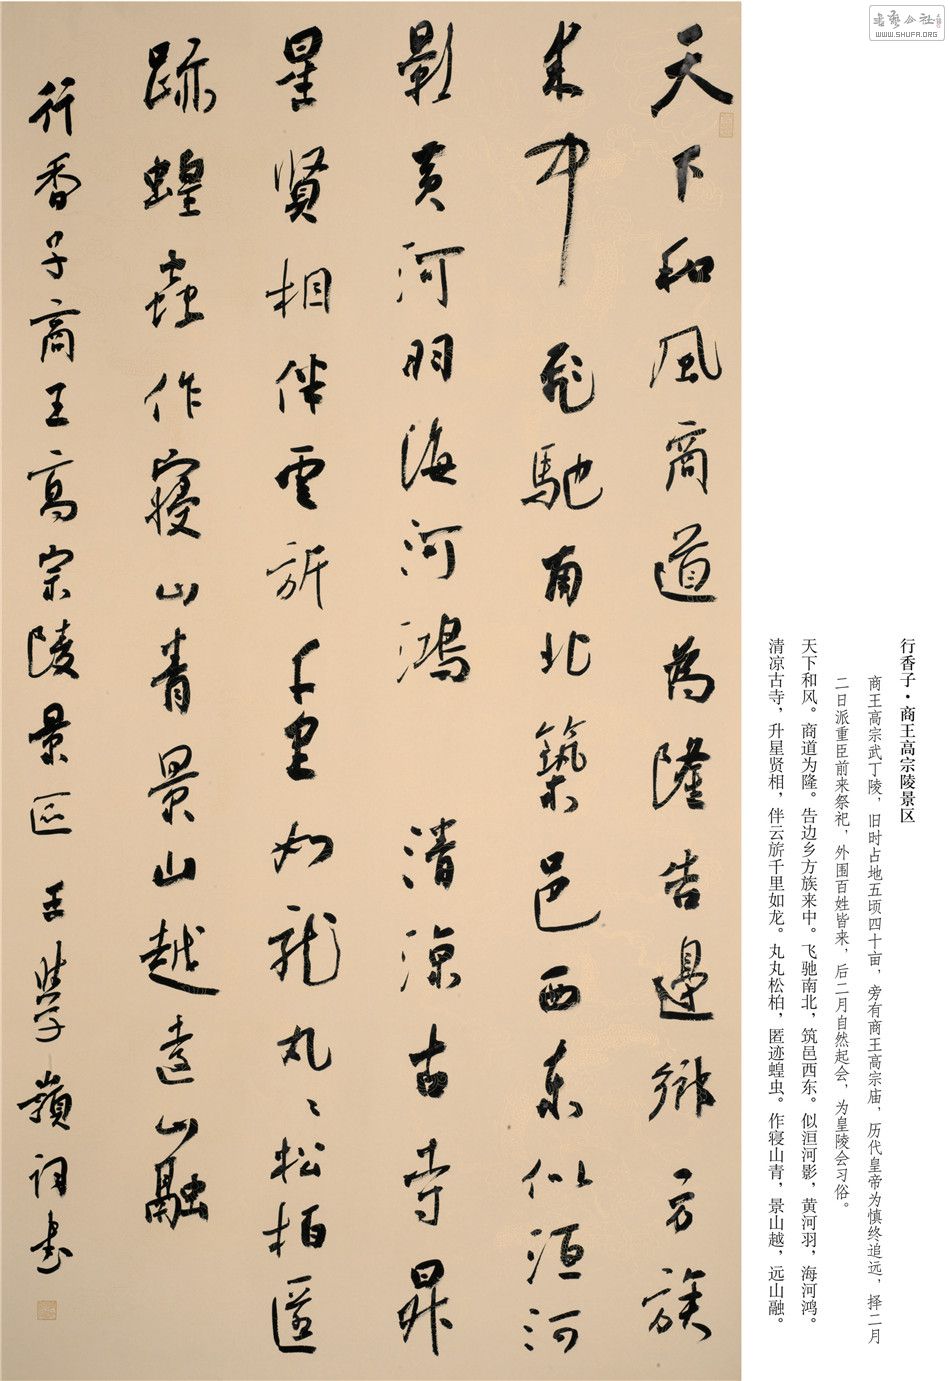 書藝公社
WWW.SHUFA.ORG
行香子·商王高宗陵景区
商王高宗武丁陵，旧时占地五顷四十亩，旁有商王高宗庙，历代皇帝为慎终追远，择二月
二日派重臣前来祭祀，外围百姓皆来，后二月自然起会，为皇陵会习俗。
天下和风。商道为隆。告边乡方族来中。飞驰南北，筑邑西东。似洹河影，黄河羽，海河鸿。
清凉古寺，升星贤相，伴云旂千里如龙。丸丸松柏，匿迹蝗虫。作寝山青，景山越，远山融。
天下和風商道為隆告邊鄉方族
来中飛馳南北築邑西東似洹河
影黄河羽海河鴻 清涼古寺昇
星贤相伴雲旂千里如龍丸〻松柏匿
跡蝗蟲作寢山青景山越遠山融
行香子商王高宗陵景区 王學嶺詞書